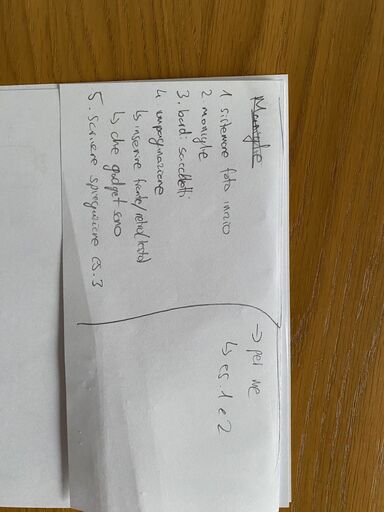 Maniglie
1 sistemare foto inizio
2 maniglie
3. bordi sacchetti
4 impaginazione
↳ inserire fronte/retro/
↳ che gadget sono
5. scrivere spiegazione es. 3
→ per me
↳ es. 1 e 2